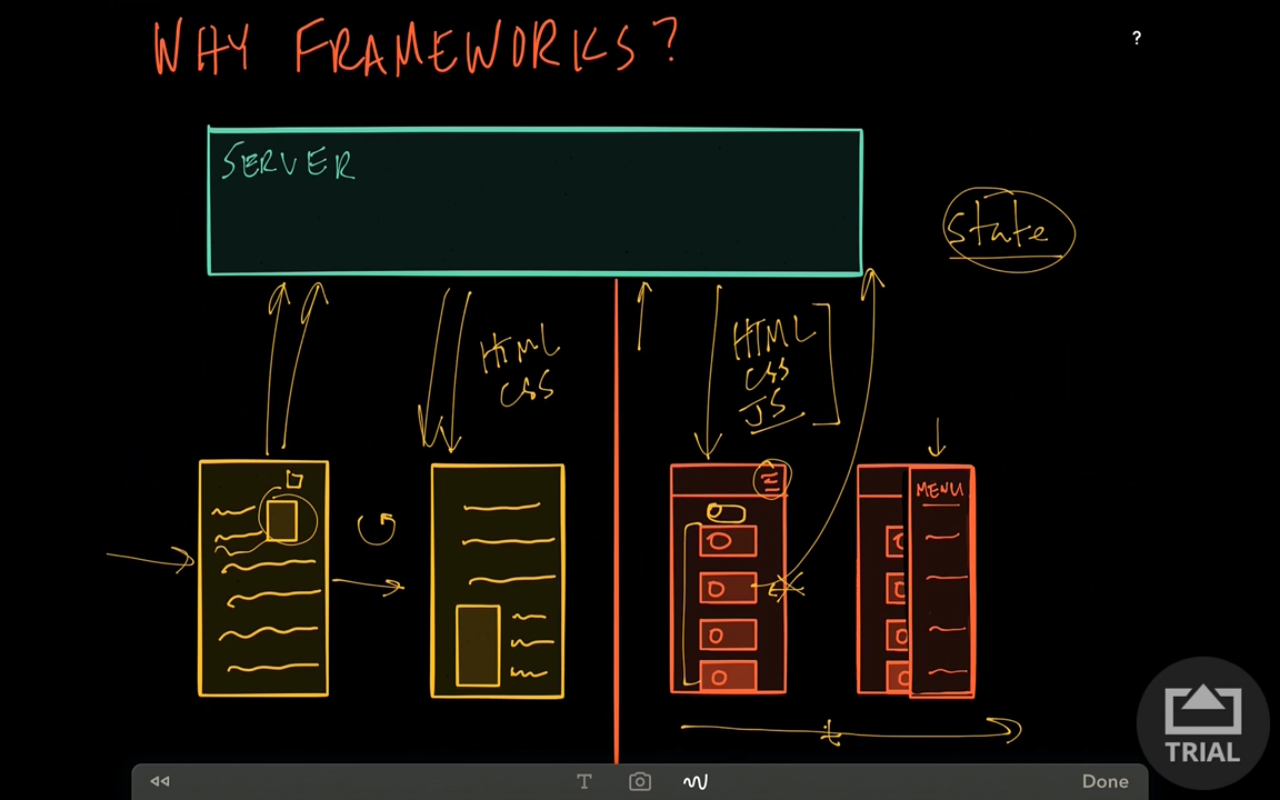 WHY FRAMEWORKS?
?
SERVER
state
HTML
CSS
HTML
CSS
JS
MENU
t
TRIAL
T
Done